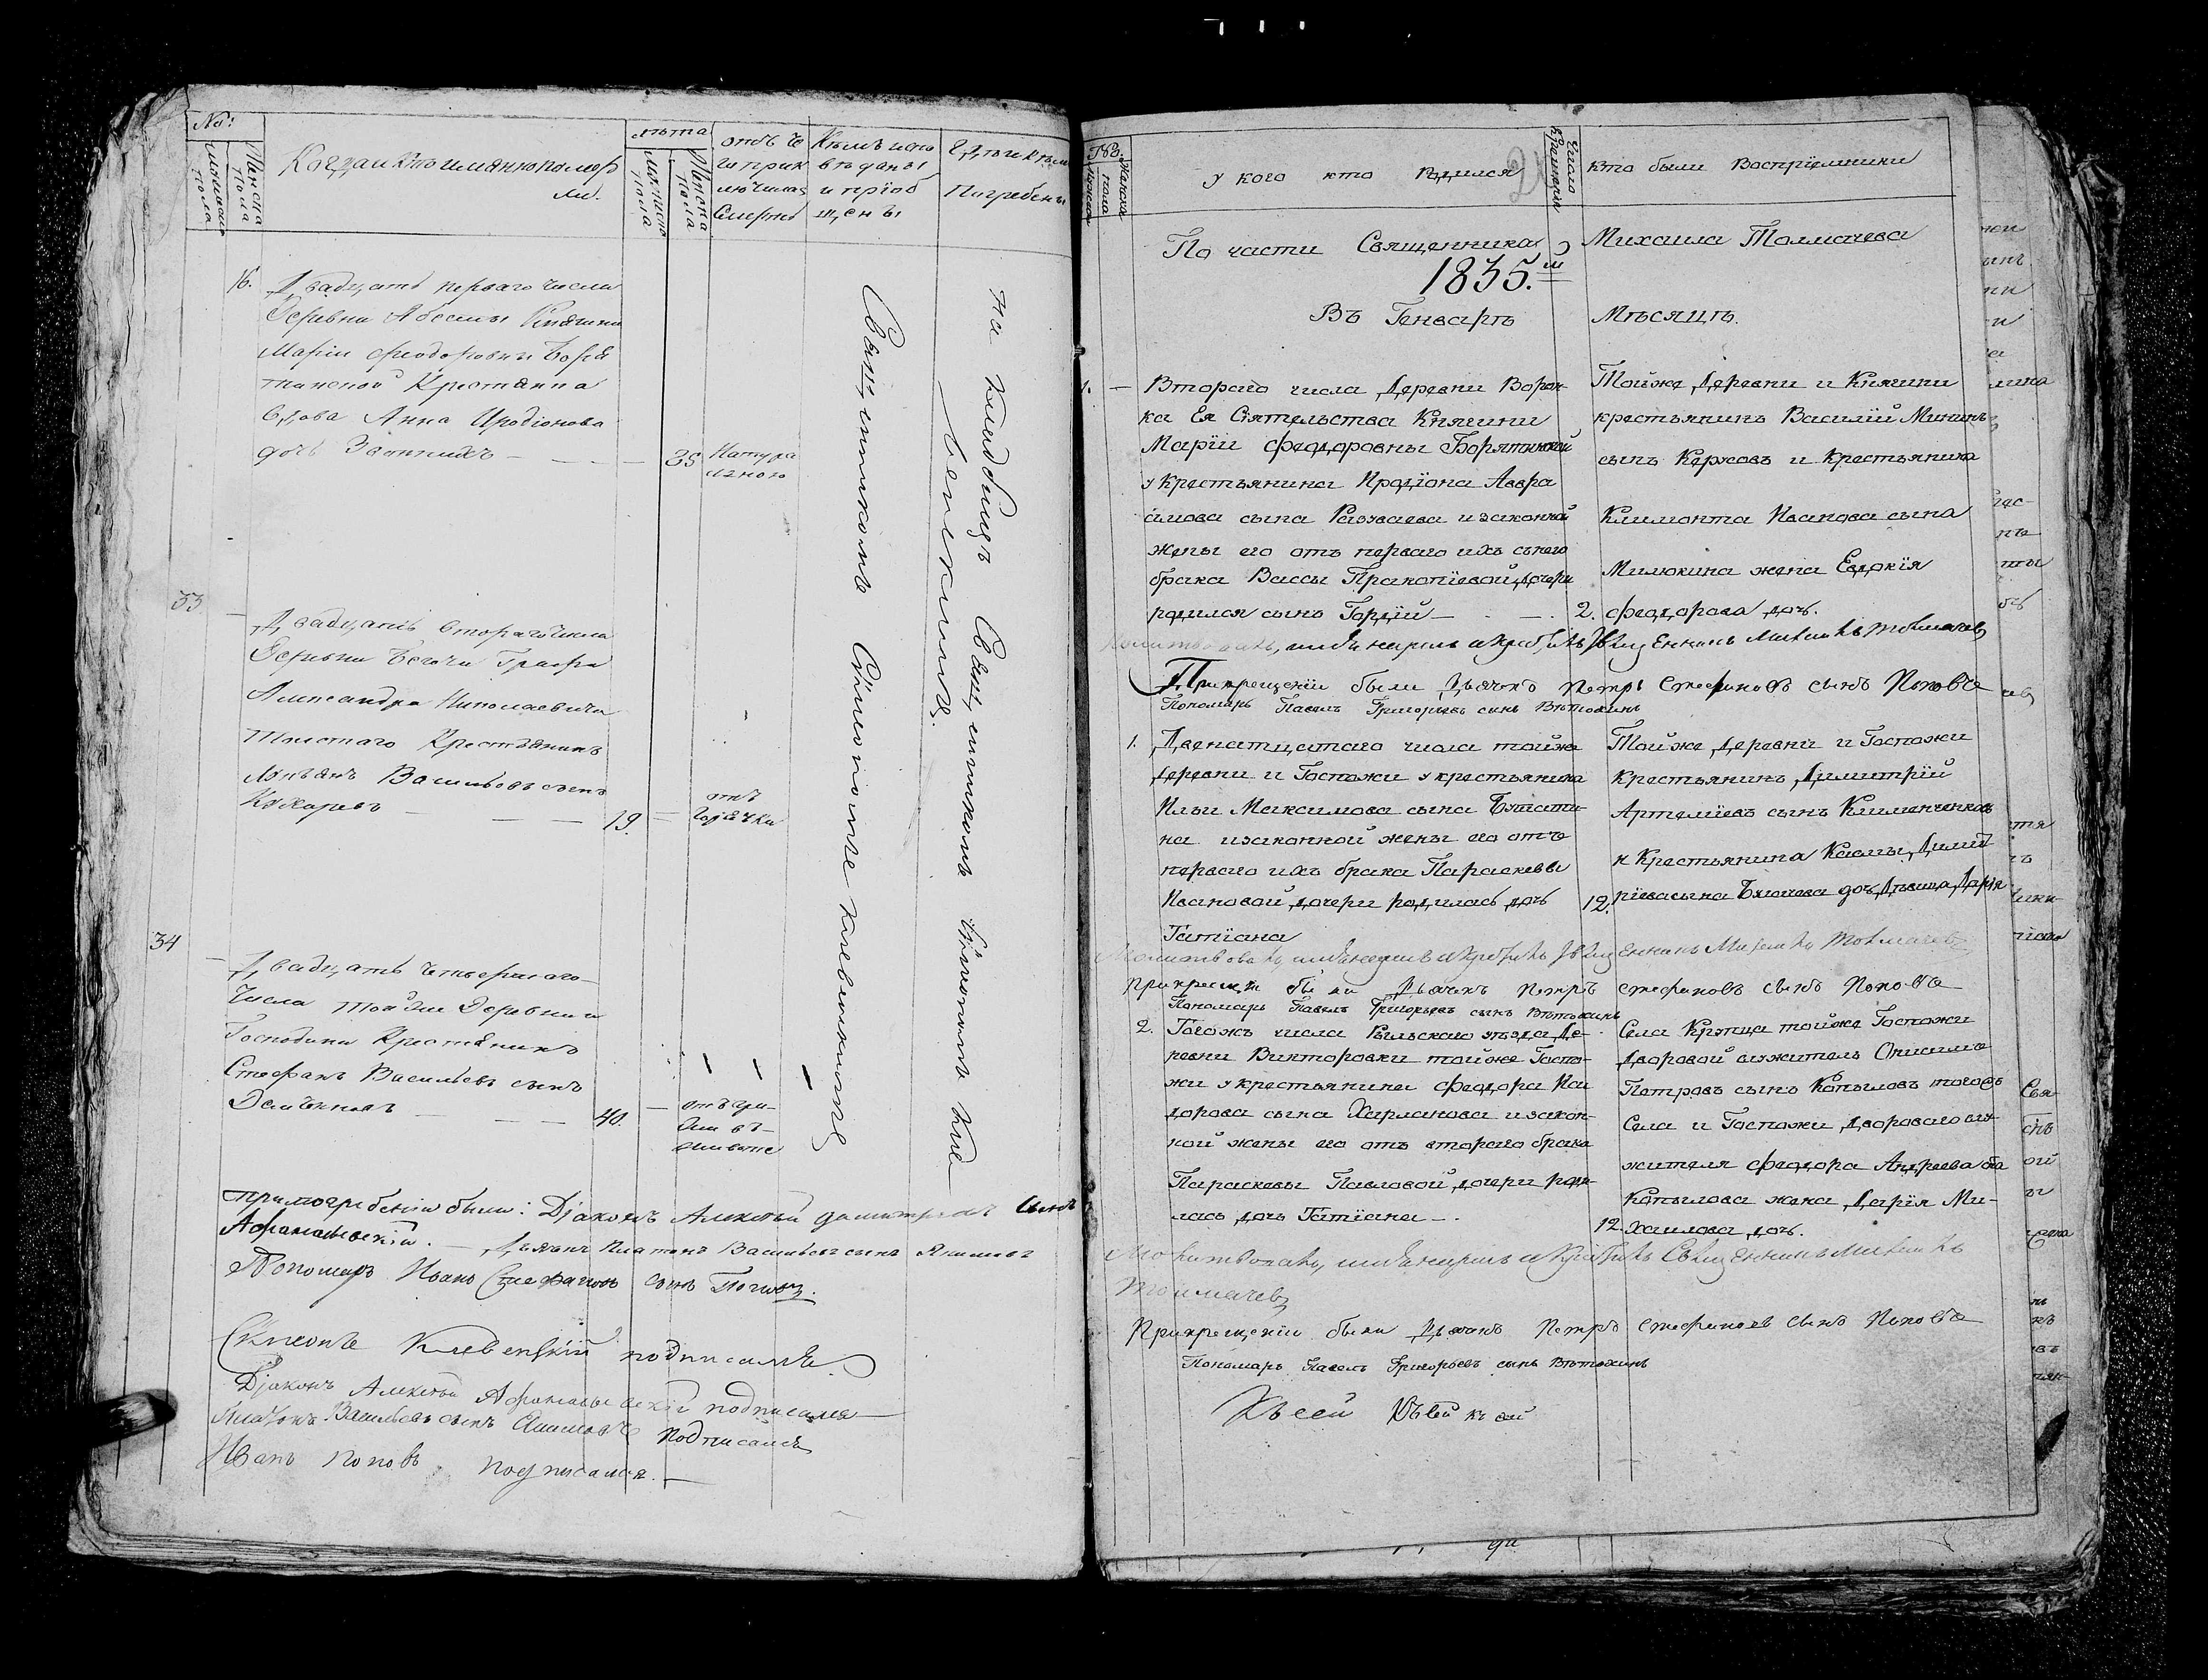 №:
Мужеска пола
Женска пола
Когда и Кто имянно помер
ли.
лѣта
Мужеска пола
Женска пола
отъ че
го прик
лючилась
Смерть
Кѣмъ испо
вѣданы
и пріоб
щены
Гдѣ и кѣмъ
Погребены
16.
Двадцать перваго числа
Деревни Княгини
Маріи Феодоровны Боря
тинской Крестьянка
вдова Анна Иродіонова
дочь
85
Натура
льного
33
Двадцать втораго числа
Деревни Графа
Александра Николаевича
Толстаго Крестьянинъ
Васильевъ сынъ
19.
отъ
Горячки
34
Двадцать четвертаго
числа той же Деревни и
Господина Крестьянинъ
Стефанъ Васильевъ сынъ
40.
Священникомъ Симеономъ Клевенскимъ
на кладбищѣ Священникомъ Симеономъ Кле
венскимъ.
При погребеніи были: Діаконъ Алексѣй Димитріевъ сынъ
Дьячекъ Платонъ Васильевъ сынъ
Пономарь Иванъ Стефановъ сынъ Поповъ.
Симеонъ Клевенскій подписался
Діаконъ Алексѣй подписался
Платонъ Васильевъ сынъ подписался
Иванъ Поповъ подписался.
Мужска
Женска
пола
у кого кто родился
Число
крещенія
кто были Воспріемники
По части Священника Михаила Толмачева
1835.й
Въ Генварѣ Мѣсяцѣ.
1. Втораго числа Деревни Ворон-
ка Ея Сіятельства Княгини
Маріи Феодоровны Борятинской
у Крестьянина Иродіона Авра
амова сына и законной
жены его отъ перваго ихъ
брака Вассы Прокопіевой дочери
родился сынъ Гордій
2.
Тойже Деревни и Княгини
крестьянинъ Василій Мининъ
сынъ и Крестьянина
Климонта Иванова сына
Милюкина жена Евдокія
Феодорова дочь.
Молитвовалъ, имя нарекъ и крестилъ Священникъ Михаилъ Толмачевъ
При крещеніи были Дьячекъ Петръ Стефановъ сынъ Поповъ
Пономарь Павелъ Григорьевъ сынъ Вѣтохинъ
1. Двенатцатаго числа тойже
Деревни и Госпожи у крестьянина
Ильи Максимова сына
на и законной жены его отъ
перваго ихъ брака Параскевы
Ивановой дочери родилась дочь
Татіана
12.
Тойже Деревни и Госпожи
Крестьянинъ Димитрій
Артеміевъ сынъ Клименченковъ
и Крестьянина Димит
ріева сына дочь Дѣвица Дарія
Молитвовалъ, имя нарекъ и крестилъ Священникъ Михаилъ Толмачевъ
При крещеніи были Дьячекъ Петръ Стефановъ сынъ Поповъ
Пономарь Павелъ Григорьевъ сынъ Вѣтохинъ
2. Тогожъ числа Рыльскаго уѣзда Де-
ревни Викторовки тойже Госпо-
жи у крестьянина Феодора
дорова сына Харланова и закон-
ной жены его отъ втораго брака
Параскевы Павловой дочери роди-
лась дочь Татіана
12.
Села Крупца тойже Госпожи
Дворовой служитель Онисимъ
Петровъ сынъ Копыловъ тогожъ
Села и Госпожи Двороваго слу-
жителя Феодора Андреева сына
Копылова жена Дарія Ми-
хаилова дочь.
Молитвовалъ, имя нарекъ и крестилъ Священникъ Михаилъ
Толмачевъ
При крещеніи были Дьячекъ Петръ Стефановъ сынъ Поповъ
Пономарь Павелъ Григорьевъ сынъ Вѣтохинъ
Къ сей